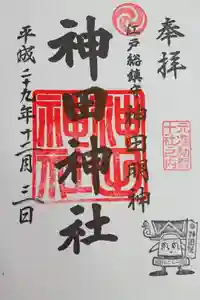 奉拝
江戸総鎮守 神田明神
神田神社
平成二十九年十二月三日
元准勅祭
十社之内